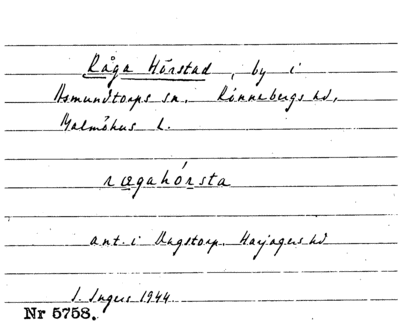 Råga Hörstad, by i
Asmundtorps sn. Rönnebergs hd,
Malmöhus l.
rægahórsta
ant. i Dagstorp. Harjagers hd
I. Ingers 1944
Nr 5758.